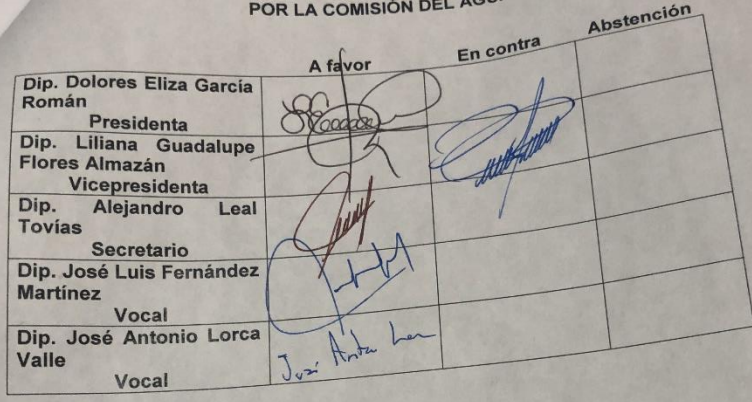 POR LA COMISIÓN DEL
A favor
En contra
Abstención
Dip. Dolores Eliza García
Román
Presidenta
Dip. Liliana Guadalupe
Flores Almazán
Vicepresidenta
Dip. Alejandro Leal
Tovías
Secretario
Dip. José Luis Fernández
Martínez
Vocal
Dip. José Antonio Lorca
Valle
Vocal